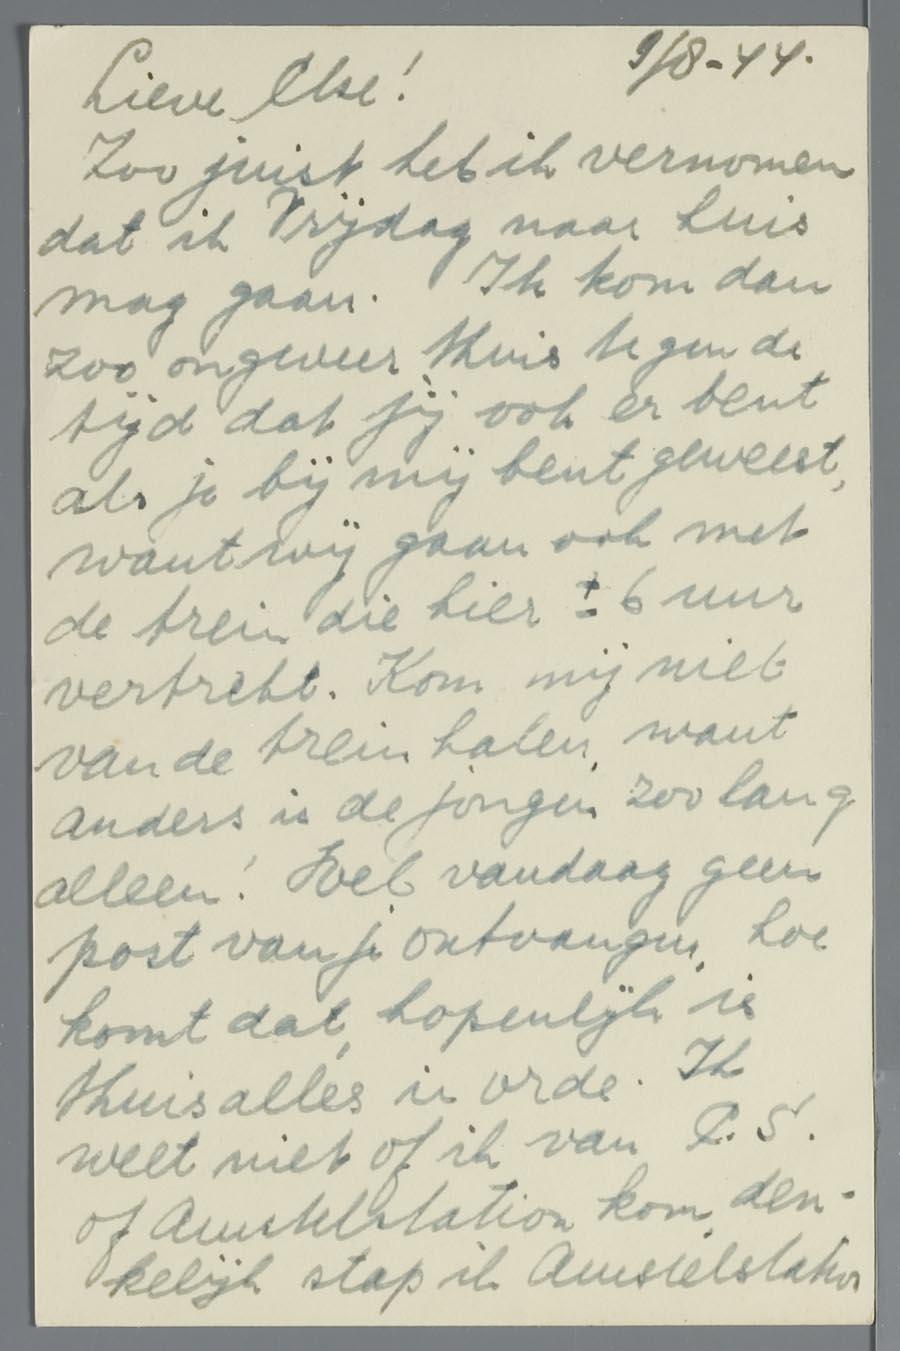 9/8-44.
Lieve Else!
Zoo juist heb ik vernomen
dat ik Vrijdag naar huis
mag gaan. Ik kom dan
zoo ongeveer thuis tegen de
tijd dat jij ook er bent
als je bij mij bent geweest,
want wij gaan ook met
de trein die hier ± 6 uur
vertrekt. Kom mij niet
van de trein halen, want
anders is de jongen zoo lang
alleen! Heb vandaag geen
post van je ontvangen, hoe
komt dat, hopenlijk is
thuis alles in orde. Ik
weet niet of ik van C. S.
of Amstelstation kom, den-
kelijk stap ik Amstelstation